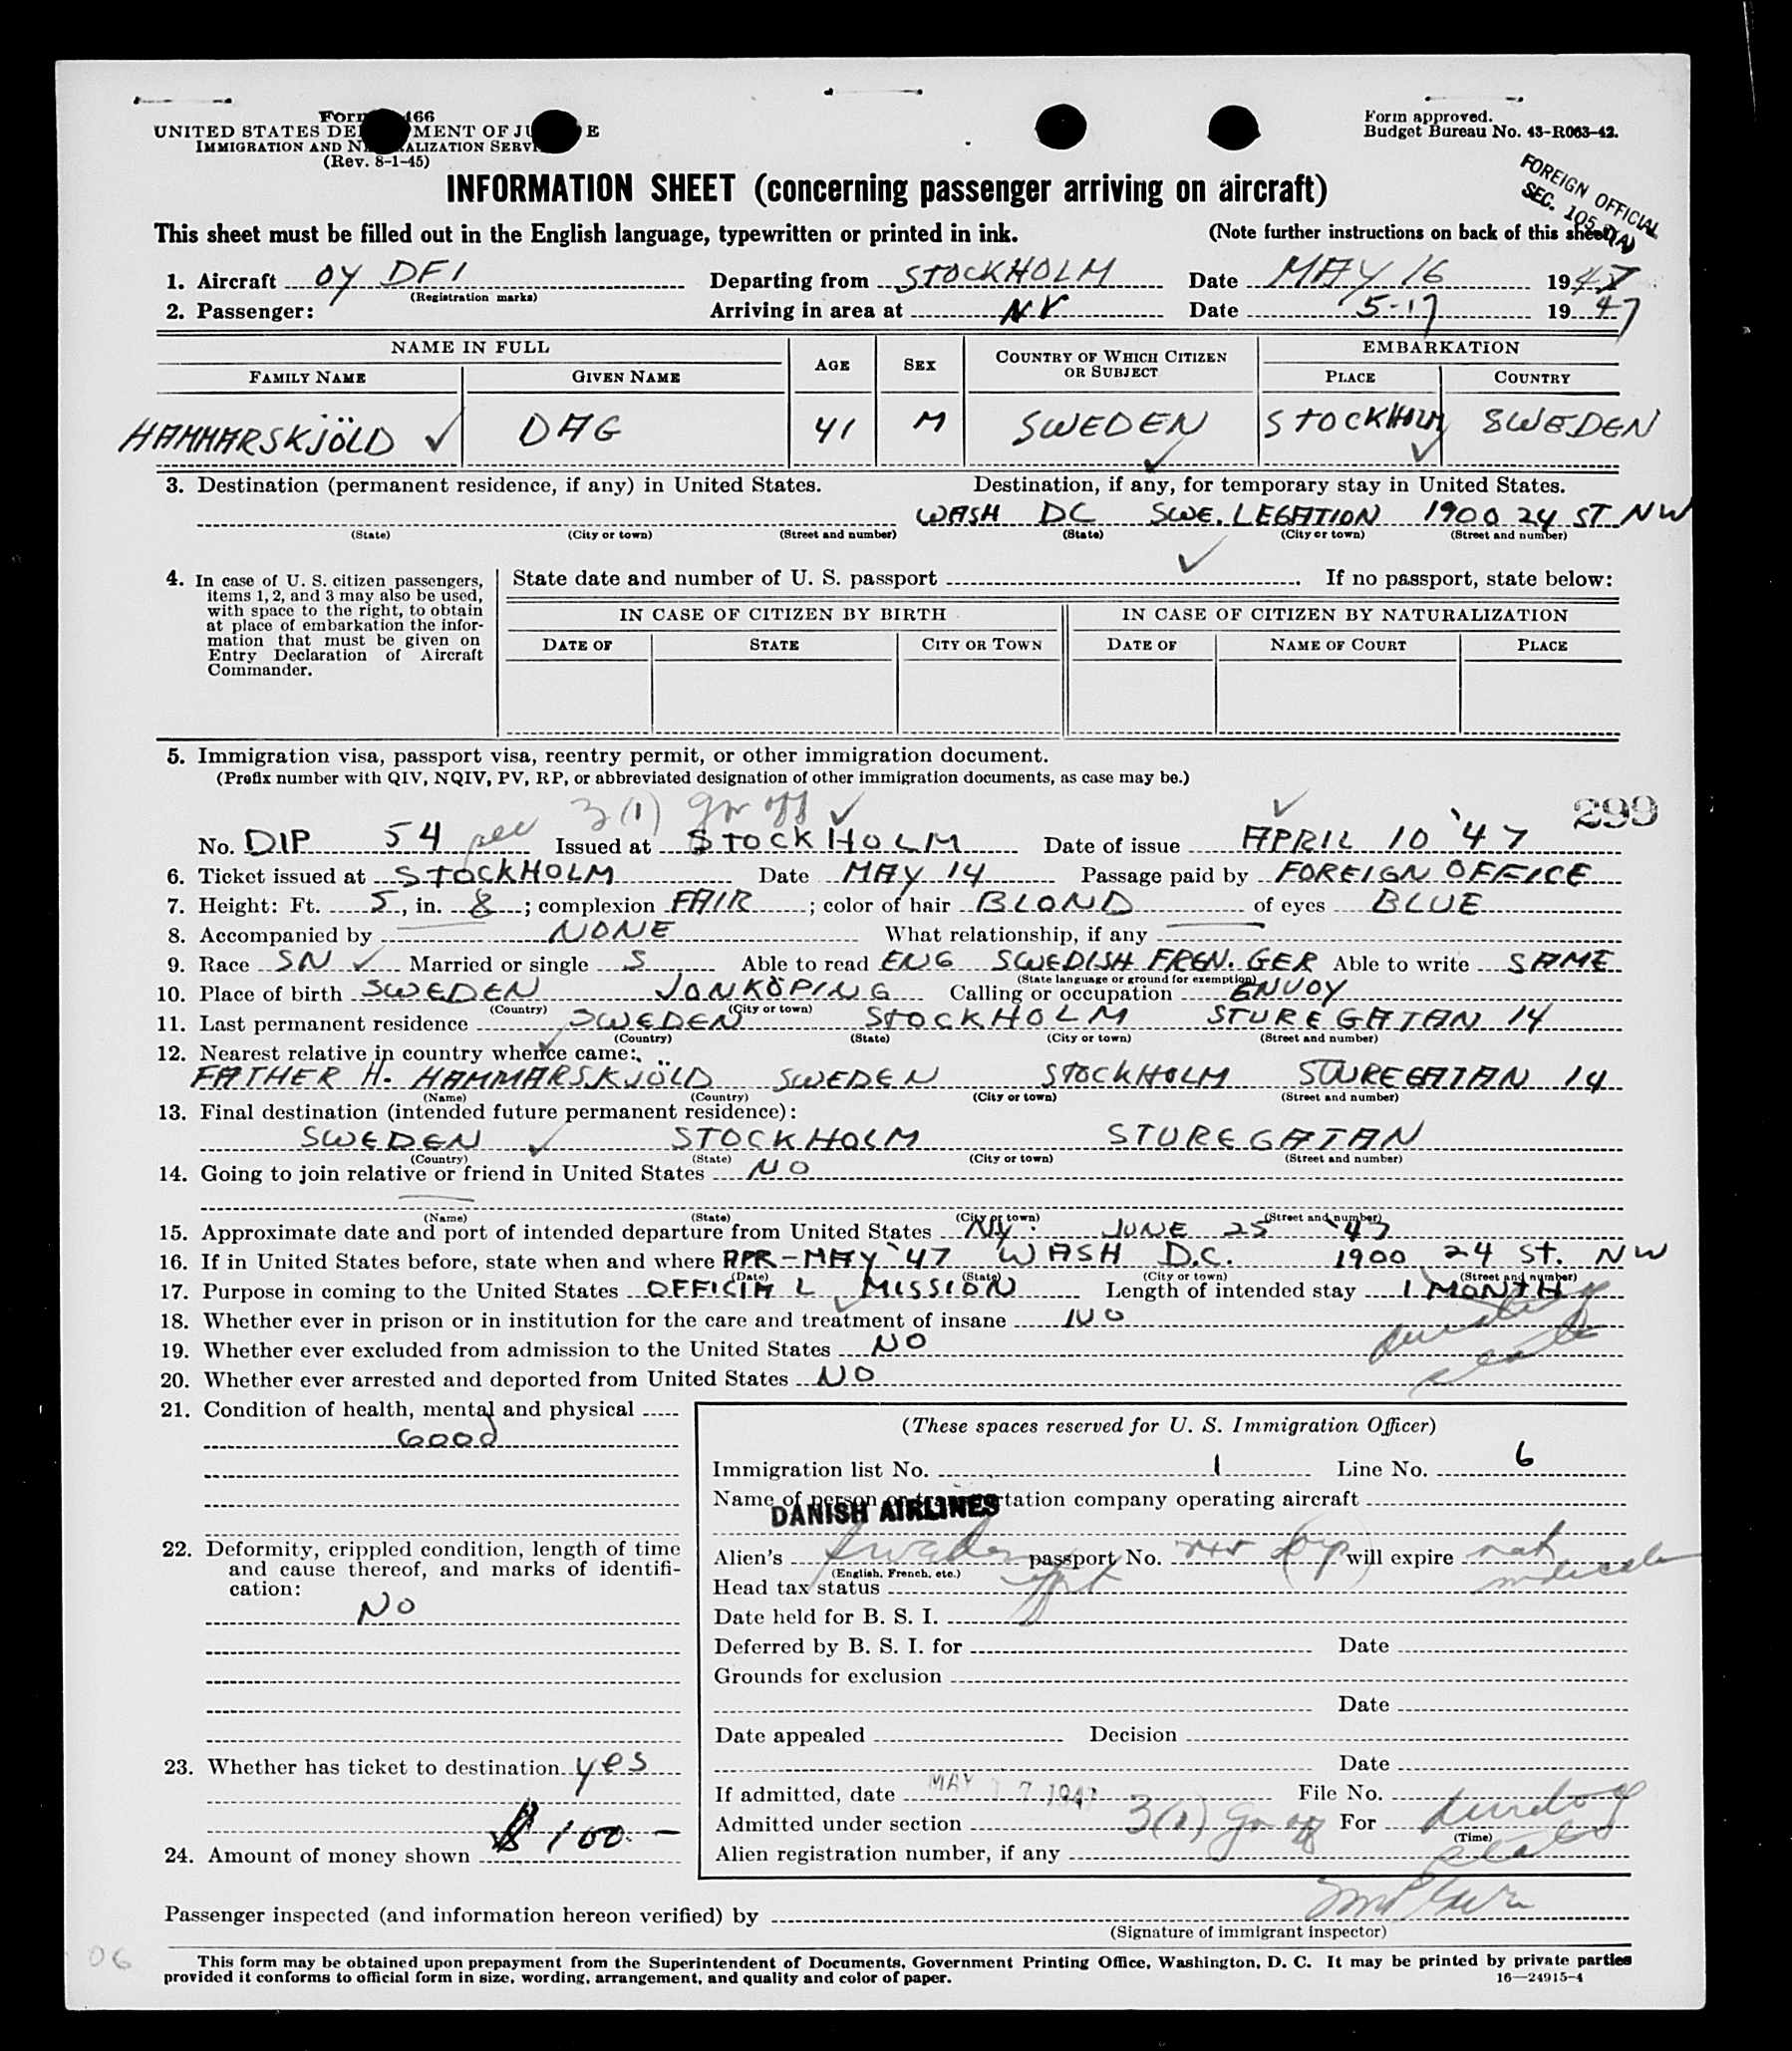 Form 466
UNITED STATES DEPARTMENT OF JUSTICE
IMMIGRATION AND NATURALIZATION SERVICE
(Rev. 8-1-45)
Form approved.
Budget Bureau No. 43-R063-42.
FOREIGN OFFICIAL
SEC. 105.3(A)
INFORMATION SHEET (concerning passenger arriving on aircraft)
This sheet must be filled out in the English language, typewritten or printed in ink. (Note further instructions on back of this sheet)
1. Aircraft OY DFI Departing from STOCKHOLM Date MAY 16 1947
(Registration marks)
2. Passenger: Arriving in area at NY Date 5-17 1947
NAME IN FULL AGE SEX COUNTRY OF WHICH CITIZEN OR SUBJECT EMBARKATION
FAMILY NAME GIVEN NAME PLACE COUNTRY
HAMMARSKJÖLD ✓ DAG 41 M SWEDEN STOCKHOLM SWEDEN
3. Destination (permanent residence, if any) in United States. Destination, if any, for temporary stay in United States.
WASH DC SWE. LEGATION 1900 24 ST NW
(State) (City or town) (Street and number) (State) (City or town) (Street and number)
4. In case of U. S. citizen passengers, items 1, 2, and 3 may also be used, with space to the right, to obtain at place of embarkation the information that must be given on Entry Declaration of Aircraft Commander.
State date and number of U. S. passport . If no passport, state below:
IN CASE OF CITIZEN BY BIRTH IN CASE OF CITIZEN BY NATURALIZATION
DATE OF STATE CITY OR TOWN DATE OF NAME OF COURT PLACE
5. Immigration visa, passport visa, reentry permit, or other immigration document.
(Prefix number with QIV, NQIV, PV, RP, or abbreviated designation of other immigration documents, as case may be.)
3(1) gov off ✓ 299
No. DIP 54 Issued at STOCKHOLM Date of issue APRIL 10 '47
6. Ticket issued at STOCKHOLM Date MAY 14 Passage paid by FOREIGN OFFICE
7. Height: Ft. 5, in. 8; complexion FAIR; color of hair BLOND of eyes BLUE
8. Accompanied by NONE What relationship, if any —
9. Race SN ✓ Married or single S Able to read ENG SWEDISH FREN. GER Able to write SAME
(State language or ground for exemption)
10. Place of birth SWEDEN JONKÖPING Calling or occupation ENVOY
(Country) (City or town)
11. Last permanent residence SWEDEN STOCKHOLM STUREGATAN 14
(Country) (State) (City or town) (Street and number)
12. Nearest relative in country whence came:
FATHER H. HAMMARSKJÖLD SWEDEN STOCKHOLM STUREGATAN 14
(Name) (Country) (City or town) (Street and number)
13. Final destination (intended future permanent residence):
SWEDEN STOCKHOLM STUREGATAN
(Country) (State) (City or town) (Street and number)
14. Going to join relative or friend in United States NO
(Name) (State) (City or town) (Street and number)
15. Approximate date and port of intended departure from United States NY. JUNE 25 '47
16. If in United States before, state when and where APR-MAY '47 WASH D.C. 1900 24 ST. NW
(Date) (State) (City or town) (Street and number)
17. Purpose in coming to the United States OFFICIAL MISSION Length of intended stay 1 MONTH
18. Whether ever in prison or in institution for the care and treatment of insane NO
19. Whether ever excluded from admission to the United States NO
20. Whether ever arrested and deported from United States NO
21. Condition of health, mental and physical
GOOD
22. Deformity, crippled condition, length of time and cause thereof, and marks of identification:
NO
23. Whether has ticket to destination yes
24. Amount of money shown $100.—
(These spaces reserved for U. S. Immigration Officer)
Immigration list No. 1 Line No. 6
Name of person or transportation company operating aircraft
DANISH AIRLINES
Alien's passport No. will expire
(English, French, etc.)
Head tax status
Date held for B. S. I.
Deferred by B. S. I. for Date
Grounds for exclusion
Date
Date appealed Decision
Date
If admitted, date MAY 17 1947 File No.
Admitted under section 3(1) gov off For
(Time)
Alien registration number, if any
Passenger inspected (and information hereon verified) by
(Signature of immigrant inspector)
06
This form may be obtained upon prepayment from the Superintendent of Documents, Government Printing Office, Washington, D. C. It may be printed by private parties
provided it conforms to official form in size, wording, arrangement, and quality and color of paper. 16—24915-4